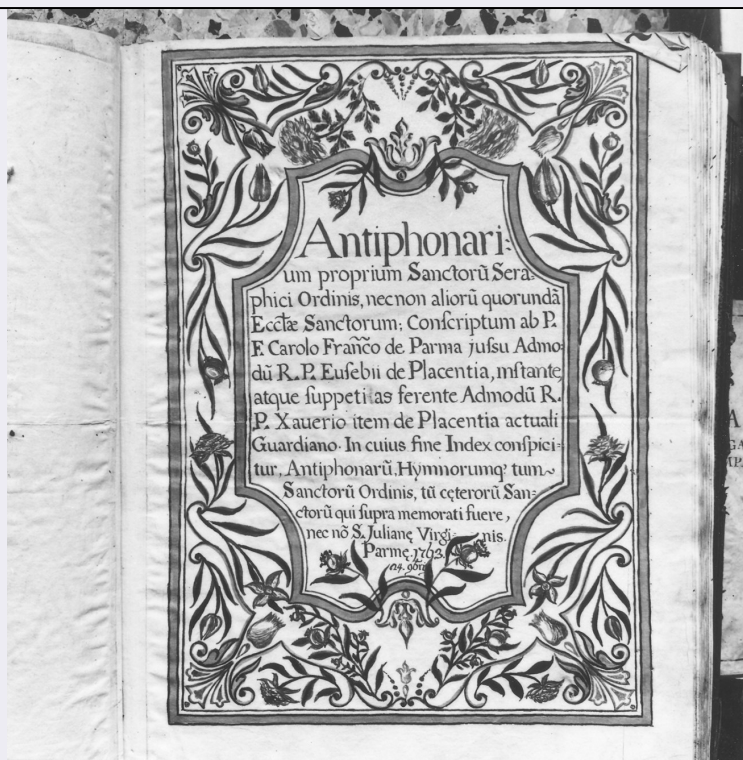 Antiphonari:
um propriũm Sanctorũ Sera:
phici Ordinis, necnon aliorũ quorundã
Eccłæ Sanctorum; Conscriptum ab P.
F. Carolo Frañco de Parma jussu Admo:
dũ R. P. Eusebii de Placentia, instante
atque suppetias ferente Admodũ R.
P. Xauerio item de Placentia actuali
Guardiano. In cuius fine Index conspici:
tur, Antiphonarũ, Hymnorumq; tum~
Sanctorũ Ordinis, tũ cęterorũ San:
ctorũ qui supra memorati fuere,
nec nõ S. Julianę Virgi: nis.
Parmę. 1763.
A